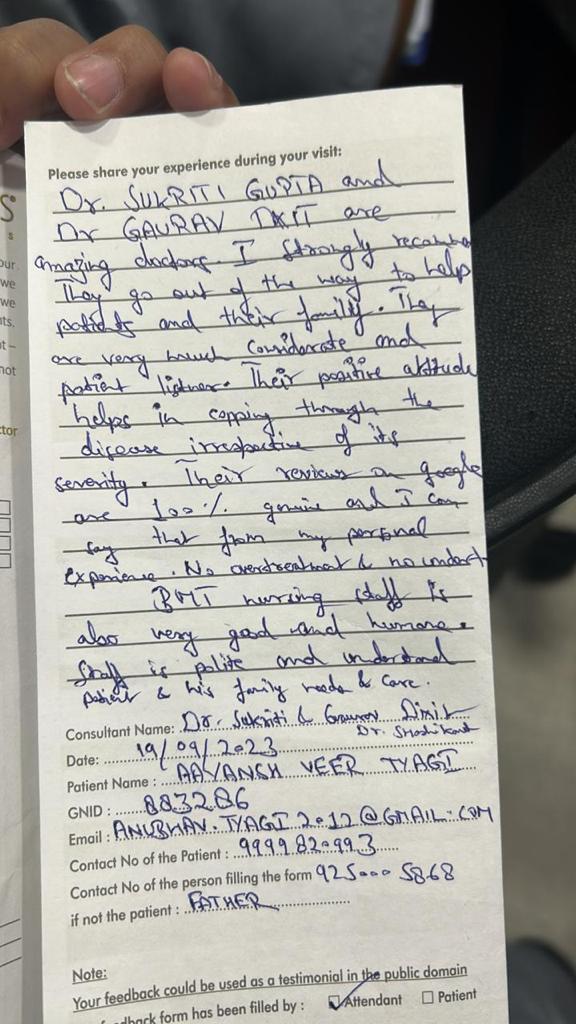 Please share your experience during your visit:
Dr. SUKRITI GUPTA and
Dr GAURAV DXIT are
amazing doctors. I strongly recomme
They go out of the way to help
patients and their family. They
are very much considerate and
patient listner. Their positive attitude
helps in copping through the
disease irrespective of its
severity. Their reviews on google
are 100% genuine and I can
say that from my personal
experience. No overtreatment & no undert
BMT nursing staff is
also very good and humane.
Staff is polite and understand
patient & his family needs & care.
Consultant Name: Dr. Sukriti & Gaurav Dixit
Dr. Shashikant
Date: 19/09/2023
Patient Name: AAYANSH VEER TYAGI
GNID: 883286
Email: ANUBHAV.TYAGI2012@GMAIL.COM
Contact No of the Patient: 9999820993
Contact No of the person filling the form 9250005868
if not the patient: FATHER
Note:
Your feedback could be used as a testimonial in the public domain
dback form has been filled by: Attendant Patient
S
s
our
we
we
nts.
t –
not
ctor